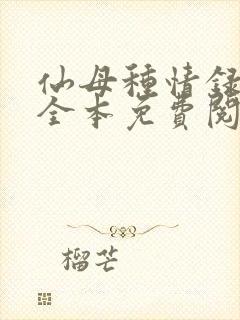 仙母種情録
全本免費閱
榴芒